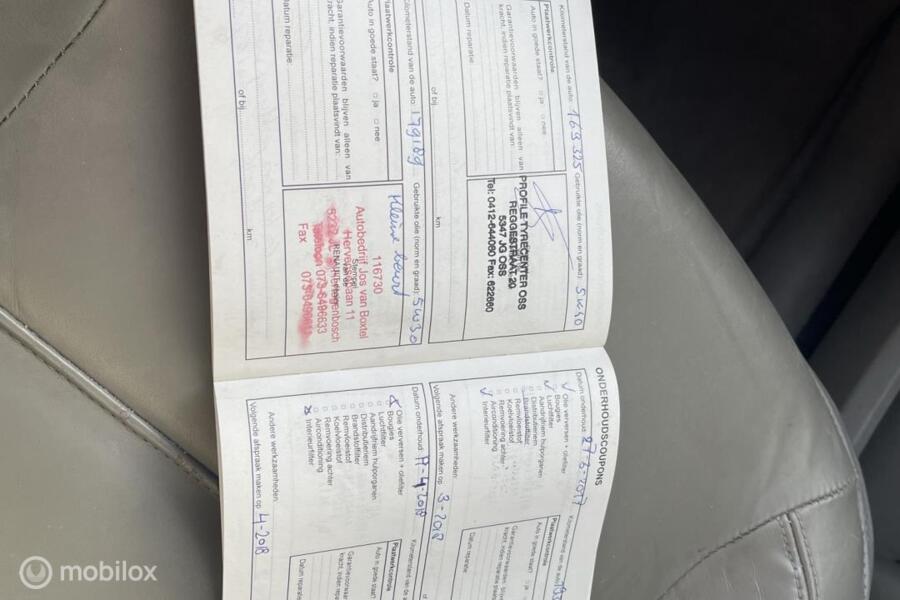 Kilometerstand van de auto: 169.325 Gebruikte olie (norm en graad): 5W40
Plaatwerkcontrole
Auto in goede staat? ja nee
Garantievoorwaarden blijven alleen van
kracht, indien reparatie plaatsvindt van:
Datum reparatie:
of bij km
PROFILE TYRECENTER OSS
REGGESTRAAT 20
5347 JG OSS
Tel: 0412-644060 Fax: 622660
Kilometerstand van de auto: 179189 Gebruikte olie (norm en graad): 5W30
Plaatwerkcontrole
Auto in goede staat? ja nee
Garantievoorwaarden blijven alleen van
kracht, indien reparatie plaatsvindt van:
Datum reparatie:
of bij km
Kleine beurt
116730
Autobedrijf Jos van Boxtel
Stempel
Fax
ONDERHOUDSCOUPONS
Datum onderhoud: 27-3-2017 Kilometerstand van de auto
Olie verversen + oliefilter
Bougies
Luchtfilter
Aandrijfriem hulporganen
Distributieriem
Brandstoffilter
Remvloeistof
Koelvloeistof
Remvoering achter
Airconditioning
Interieurfilter
Plaatwerkcontrole
Auto in goede staat?
Garantievoorwaarden
kracht, indien reparatie
Datum reparatie
Andere werkzaamheden:
Volgende afspraak maken op: 3-2018
of
Datum onderhoud: 11-4-2018 Kilometerstand van de a
Olie verversen + oliefilter
Bougies
Luchtfilter
Aandrijfriem hulporganen
Distributieriem
Brandstoffilter
Remvloeistof
Koelvloeistof
Remvoering achter
Airconditioning
Interieurfilter
Plaatwerkcontrole
Auto in goede staat?
Garantievoorwaarden
kracht, indien repar
Datum reparatie
Andere werkzaamheden:
Volgende afspraak maken op: 4-2018
mobilox